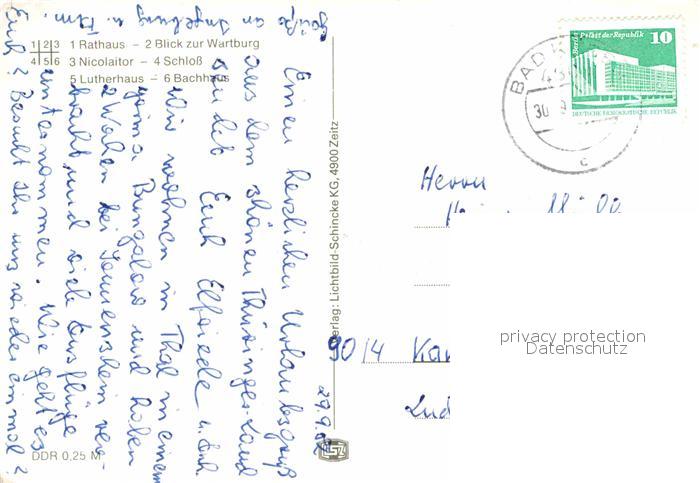 1|2|3 1 Rathaus – 2 Blick zur Wartburg
4|5|6 3 Nicolaitor – 4 Schloß
5 Lutherhaus – 6 Bachhaus
Einen herzlichen Urlaubsgruß
aus dem schönen Thüringer-Land
sendet Euch Elfriede u.
Wir wohnen in Thal in einem
Bungalow und haben
2 Wochen bei Sonnenschein ver-
bracht und viele Ausflüge
unternommen. Wie geht es
Euch? Besucht Ihr uns wieder einmal?
Grüße an Ingeburg u. Fam.
DDR 0,25 M
Verlag: Lichtbild-Schincke KG, 4900 Zeitz
Berlin, Palast der Republik
10
DEUTSCHE DEMOKRATISCHE REPUBLIK
BAD
30
c
Herrn
9014
privacy protection
Datenschutz